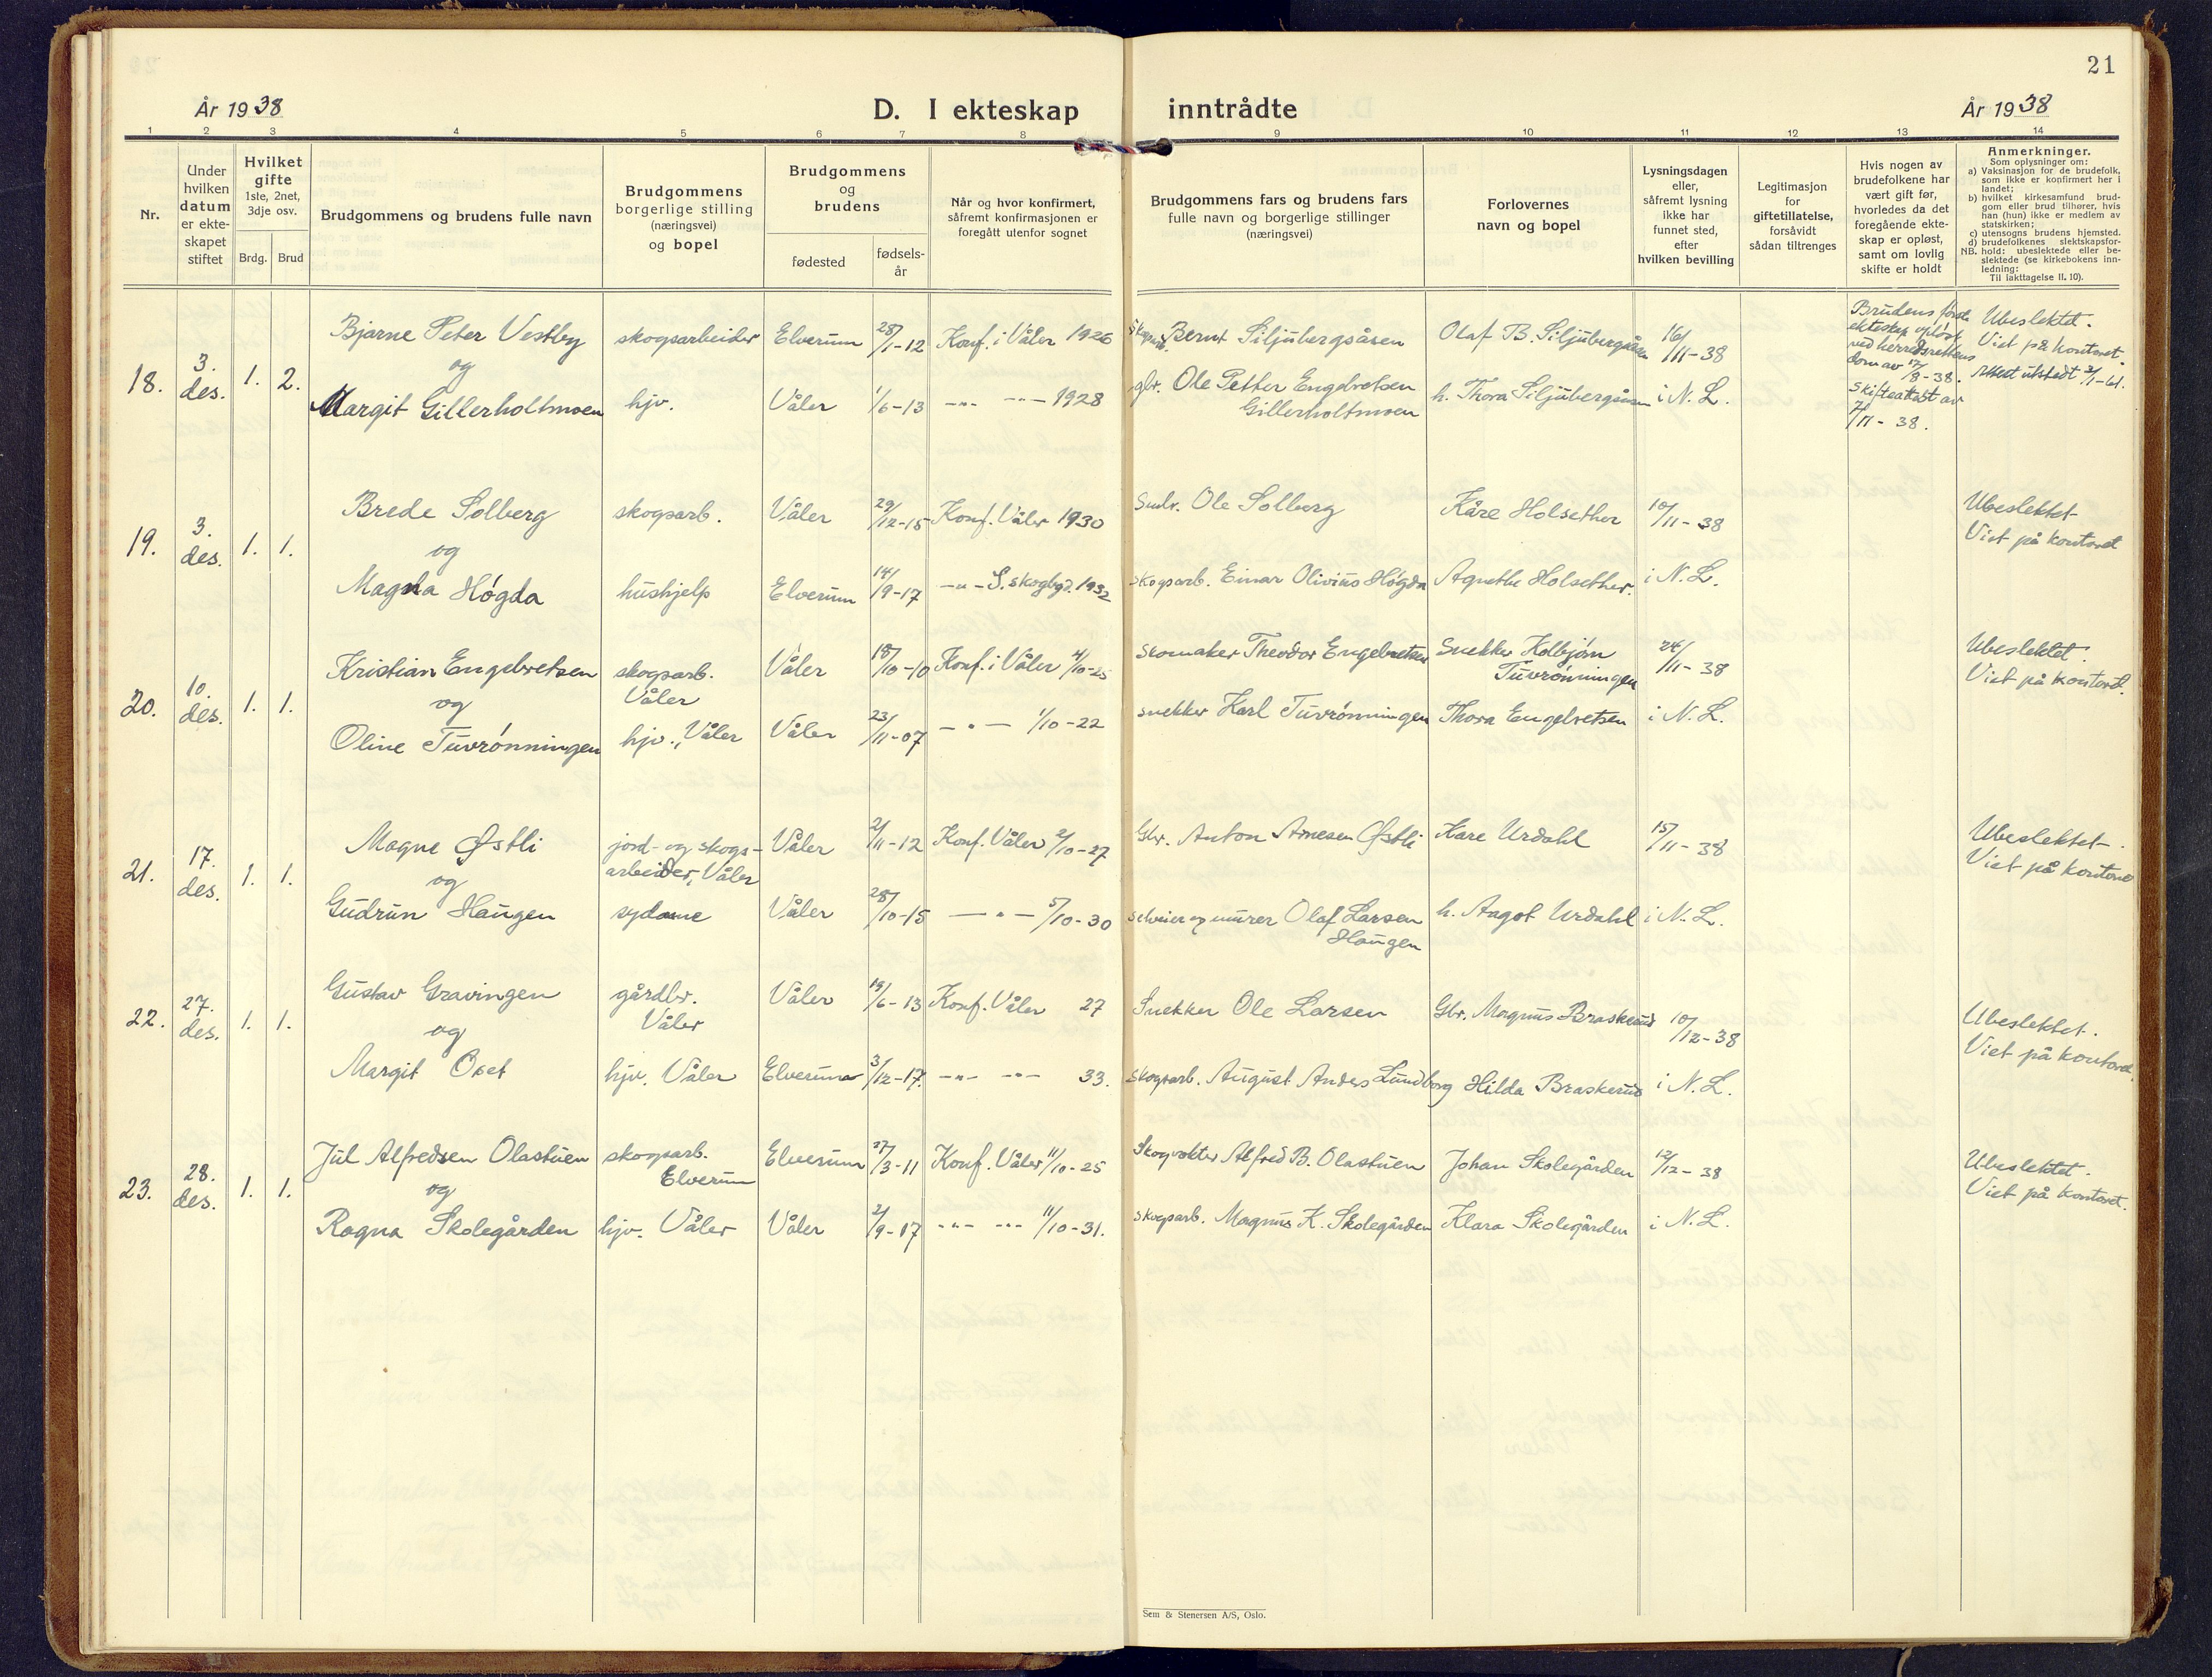 21
År 1938
D. I ekteskap inntrådte
År 1938
1 2 3 4 5 6 7 8 9 10 11 12 13 14
Nr.
Under hvilken datum er ekte- skapet stiftet
Hvilket gifte 1ste, 2net, 3dje osv.
Brdg. Brud
Brudgommens og brudens fulle navn
Brudgommens borgerlige stilling (næringsvei) og bopel
Brudgommens og brudens
fødested
fødsels- år
Når og hvor konfirmert, såfremt konfirmasjonen er foregått utenfor sognet
Brudgommens fars og brudens fars fulle navn og borgerlige stillinger (næringsvei)
Forlovernes navn og bopel
Lysningsdagen eller, såfremt lysning ikke har funnet sted, efter hvilken bevilling
Legitimasjon for giftetillatelse, forsåvidt sådan tiltrenges
Hvis nogen av brudefolkene har vært gift før, hvorledes da det foregående ekte- skap er opløst, samt om lovlig skifte er holdt
Anmerkninger.
Som oplysninger om:
a) Vaksinasjon for de brudefolk, som ikke er konfirmert her i landet;
b) hvilket kirkesamfund brud- gom eller brud tilhører, hvis han (hun) ikke er medlem av statskirken;
c) utensogns brudens hjemsted.
d) brudefolkenes slektskapsfor- hold: ubeslektede eller be- slektede (se kirkebokens inn- ledning:
NB. Til iakttagelse II. 10).
18. 3. des. 1. 2.
Bjarne Peter Vestby skogsarbeider Elverum 28/1-12 Konf. i Våler 1926 Bernt Siljubergsåsen Olaf B. Siljubergsåsen 16/11-38
og
Margit Gillerholtmoen hjv. Våler 1/6-13 -"- -"- 1928 gbr. Ole Petter Engebretsen Gillerholtmoen h. Thora Siljubergsåsen i N. L.
Brudens første ekteskap opløst ved herredsrettens dom av 17/8-38. Skifteattest av 7/11-38.
Ubeslektet.
Viet på kontoret.
Attest utstedt 3/1-61.
19. 3. des. 1. 1.
Brede Solberg skogsarb. Våler 29/12-15 Konf. Våler 1930 Ole Solberg Kåre Holsether 10/11-38
og
Magna Høgda hushjelp Elverum 14/9-17 -"- S. skogbgd. 1932 skogsarb. Einar Olivius Høgda Agnethe Holsether. i N. L.
Ubeslektet
Viet på kontoret
20. 10. des. 1. 1.
Kristian Engebretsen skogsarb. Våler Våler 18/10-10 Konf. i Våler 4/10-25 skomaker Theodor Engebretsen Snekker Kolbjørn Tuvrønningen 24/11-38
og
Oline Tuvrønningen hjv., Våler Våler 23/11-07 -"- 1/10-22 snekker Karl Tuvrønningen Thora Engebretsen i N. L.
Ubeslektet.
Viet på kontoret.
21. 17. des. 1. 1.
Magne Østli jord- og skogs- arbeider, Våler Våler 2/11-12 Konf. Våler 2/10-27 Gbr. Anton Arnesen Østli Kare Urdahl 15/11-38
og
Gudrun Haugen sydame Våler 28/10-15 -"- 5/10-30 og murer Olaf Larsen Haugen h. Aagot Urdahl i N. L.
Ubeslektet.
Viet på kontoret
22. 27. des. 1. 1.
Gustav Gravingen gårdbr. Våler Våler 19/6-13 Konf. Våler 27 Snekker Ole Larsen Gbr. Magnus Braskerud 10/12-38
og
Margit Oset hjv. Våler Elverum 3/12-17. -"- -"- 33. skogsarb. August Anders Lundborg Hilda Braskerud i N. L.
Ubeslektet.
Viet på kontoret.
23. 28. des. 1. 1.
Jul Alfredsen Olastuen skogsarb. Elverum Elverum 27/3-11 Konf. Våler 11/10-25 Skogvokter Alfred B. Olastuen Johan Skolegården 12/12-38
og
Ragna Skolegården hjv. Våler Våler 2/9-17 -"- -"- 11/10-31. skogsarb. Magnus K. Skolegården Klara Skolegården i N. L.
Ubeslektet.
Viet på kontoret.
Sem & Stenersen A/S, Oslo.